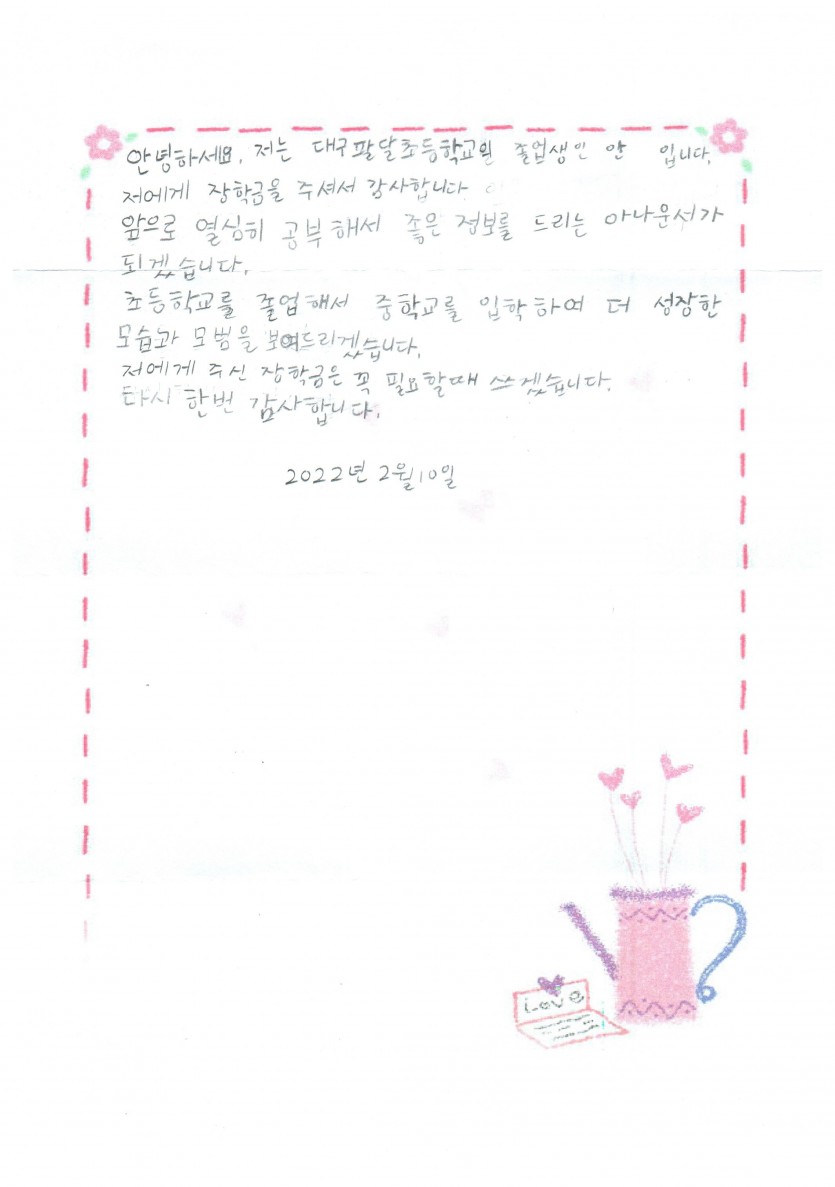 안녕하세요, 저는 대구팔달초등학교의 졸업생인 안 입니다.
저에게 장학금을 주셔서 감사합니다
앞으로 열심히 공부해서 좋은 정보를 드리는 아나운서가
되겠습니다.
초등학교를 졸업해서 중학교를 입학하여 더 성장한
모습과 모범을 보여드리겠습니다.
저에게 주신 장학금은 꼭 필요할때 쓰겠습니다.
다시 한번 감사합니다.
2022년 2월10일
Love